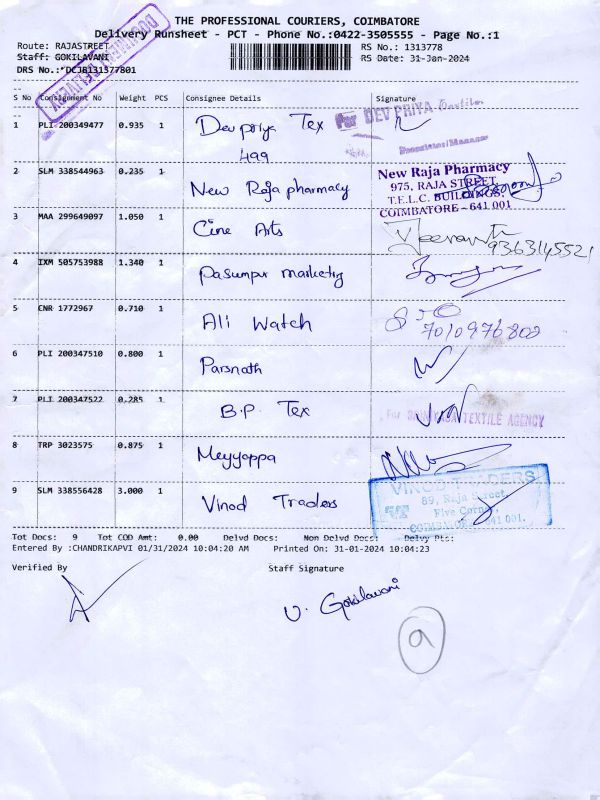 THE PROFESSIONAL COURIERS, COIMBATORE
Delivery Runsheet - PCT - Phone No.:0422-3505555 - Page No.:1
Route: RAJASTREET
RS No.: 1313778
Staff: GOKILAVANI
RS Date: 31-Jan-2024
DRS No.: DCJB131377801
S No Consignment No Weight PCS Consignee Details Signature
1 PLI 200349477 0.935 1 Devpriya Tex
For DEV PRIYA
499
Proprietor/Manager
2 SLM 338544963 0.235 1 New Raja pharmacy
New Raja Pharmacy
975, RAJA STREET,
T.E.L.C. BUILDINGS,
COIMBATORE - 641 001
3 MAA 299649097 1.050 1 Cine Arts
9363145521
4 IXM 505753988 1.340 1 Pasumpur marketing
5 CNR 1772967 0.710 1 Ali Watch
7010976802
6 PLI 200347510 0.800 1 Parsnath
7 PLI 200347522 0.285 1 B.P. Tex
TEXTILE AGENCY
8 TRP 3023575 0.875 1 Meyyappa
9 SLM 338556428 3.000 1 Vinod Traders
VINOD TRADERS
89, Raja Street,
Five Corner,
COIMBATORE - 641 001.
Tot Docs: 9 Tot COD Amt: 0.00 Delvd Docs: Non Delvd Docs: Delvy Pts:
Entered By :CHANDRIKAPVI 01/31/2024 10:04:20 AM Printed On: 31-01-2024 10:04:23
Verified By Staff Signature
V. Gokilavani
9